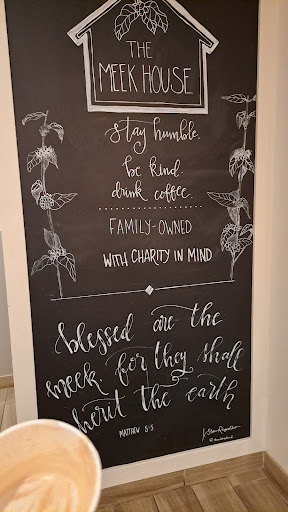 THE
MEEK HOUSE
stay humble.
be kind.
drink coffee.
FAMILY-OWNED
WITH CHARITY IN MIND
blessed are the
meek, for they shall
herit the earth
MATTHEW 5:5